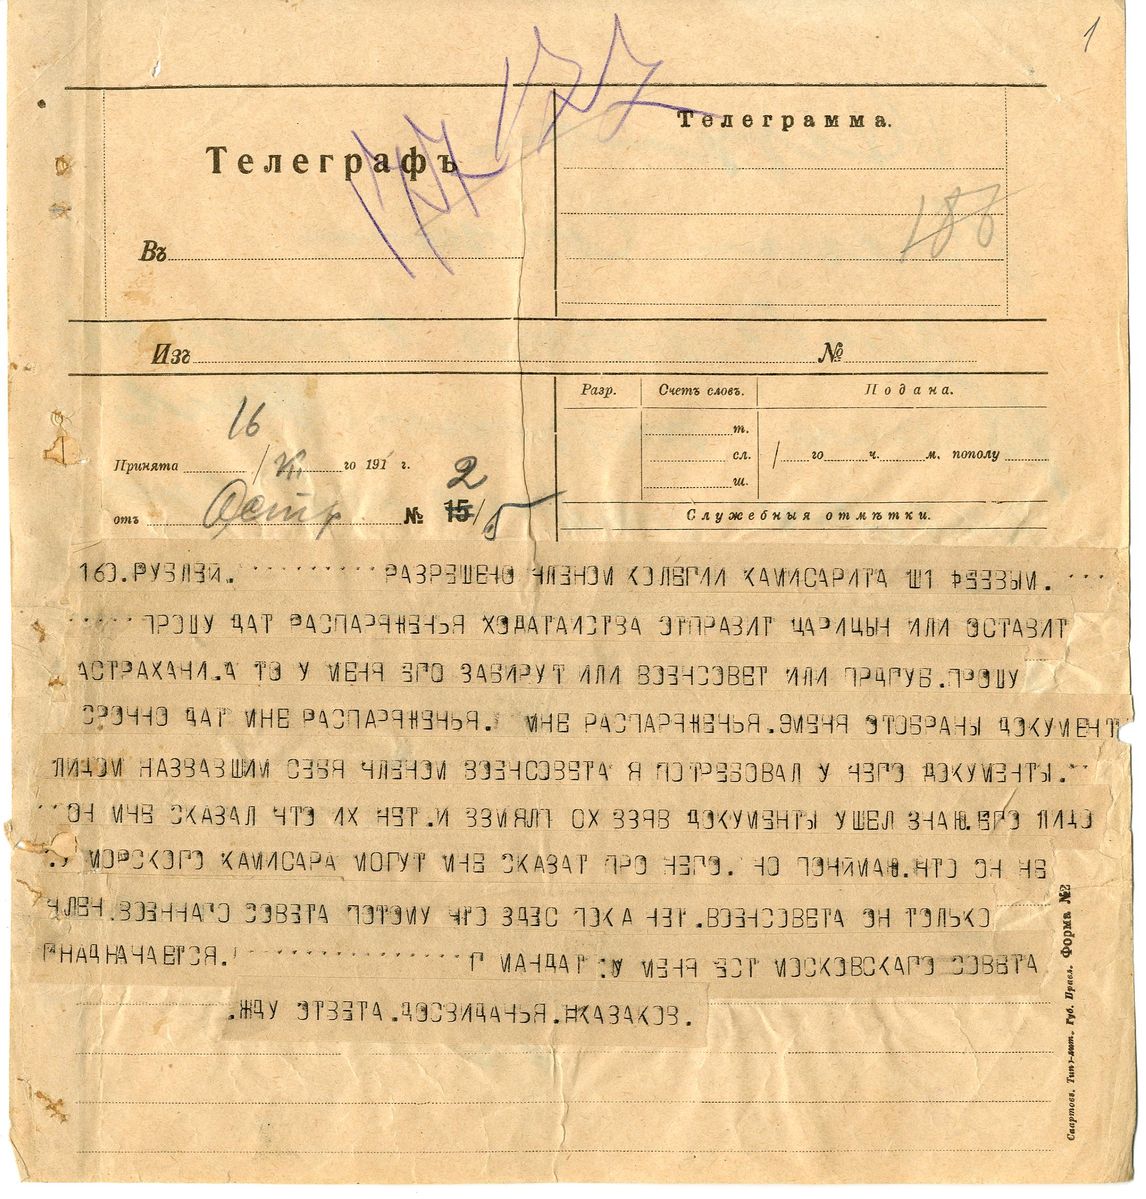 1
177 177
Телеграфъ
Телеграмма.
188
Въ
Изъ №
Разр. Счетъ словъ. Подана.
16
т.
Принята / го 191 г.
сл. / го ч. м. пополу
2
ш.
отъ Астр № 15/5
Служебныя отмѣтки.
160.РУБЛЕЙ. РАЗРЕШЕНО ЧЛЕНОМ КОЛЕГИИ КАМИСАРИТА
ПРОШУ ДАТ РАСПАРЯЖЕНЬЯ ХОДАТАИСТВА ОТПРАВИТ ЦАРИЦЫН ИЛИ ОСТАВИТ
АСТРАХАНИ.А ТО У МЕНЯ ЕГО ЗАБИРУТ ИЛИ ВОЕНСОВЕТ ИЛИ ПРДГУБ.ПРОШУ
СРОЧНО ДАТ МНЕ РАСПАРЯЖЕНЬЯ. МНЕ РАСПАРЯЖЕНЬЯ.ЭМЕНЯ ЭТОБРАНЫ ДОКУМЕНТ
ЛИЦОМ НАЗВАВШИМ СЕБЯ ЧЛЕНОМ ВОЕНСОВЕТА Я ПОТРЕБОВАЛ У НЕГО ДОКУМЕНТЫ.
ОН МНЕ СКАЗАЛ ЧТО ИХ НЕТ.И ВЗЯВ ДОКУМЕНТЫ УШЕЛ ЗНАЮ.ЕГО ЛИЦО
У МОРСКОГО КАМИСАРА МОГУТ МНЕ СКАЗАТ ПРО НЕГО. НО ПОНИМАЮ.ЧТО ОН НЕ
ЧЛЕН.ВОЕННАГО СОВЕТА ПОТОМУ ЧТО ЗДЕС ПОКА НЕТ.ВОЕНСОВЕТА ОН ТОЛЬКО
НАДНАЧАЕТСЯ. МАНДАТ :У МЕНЯ ЕСТ МОСКОВСКАГО СОВЕТА
.ЖДУ ОТВЕТА.ДОСВИДАНЬЯ. КАЗАКОВ.
Саратовъ. Типо-лит. Губ. Правл. Форма №2